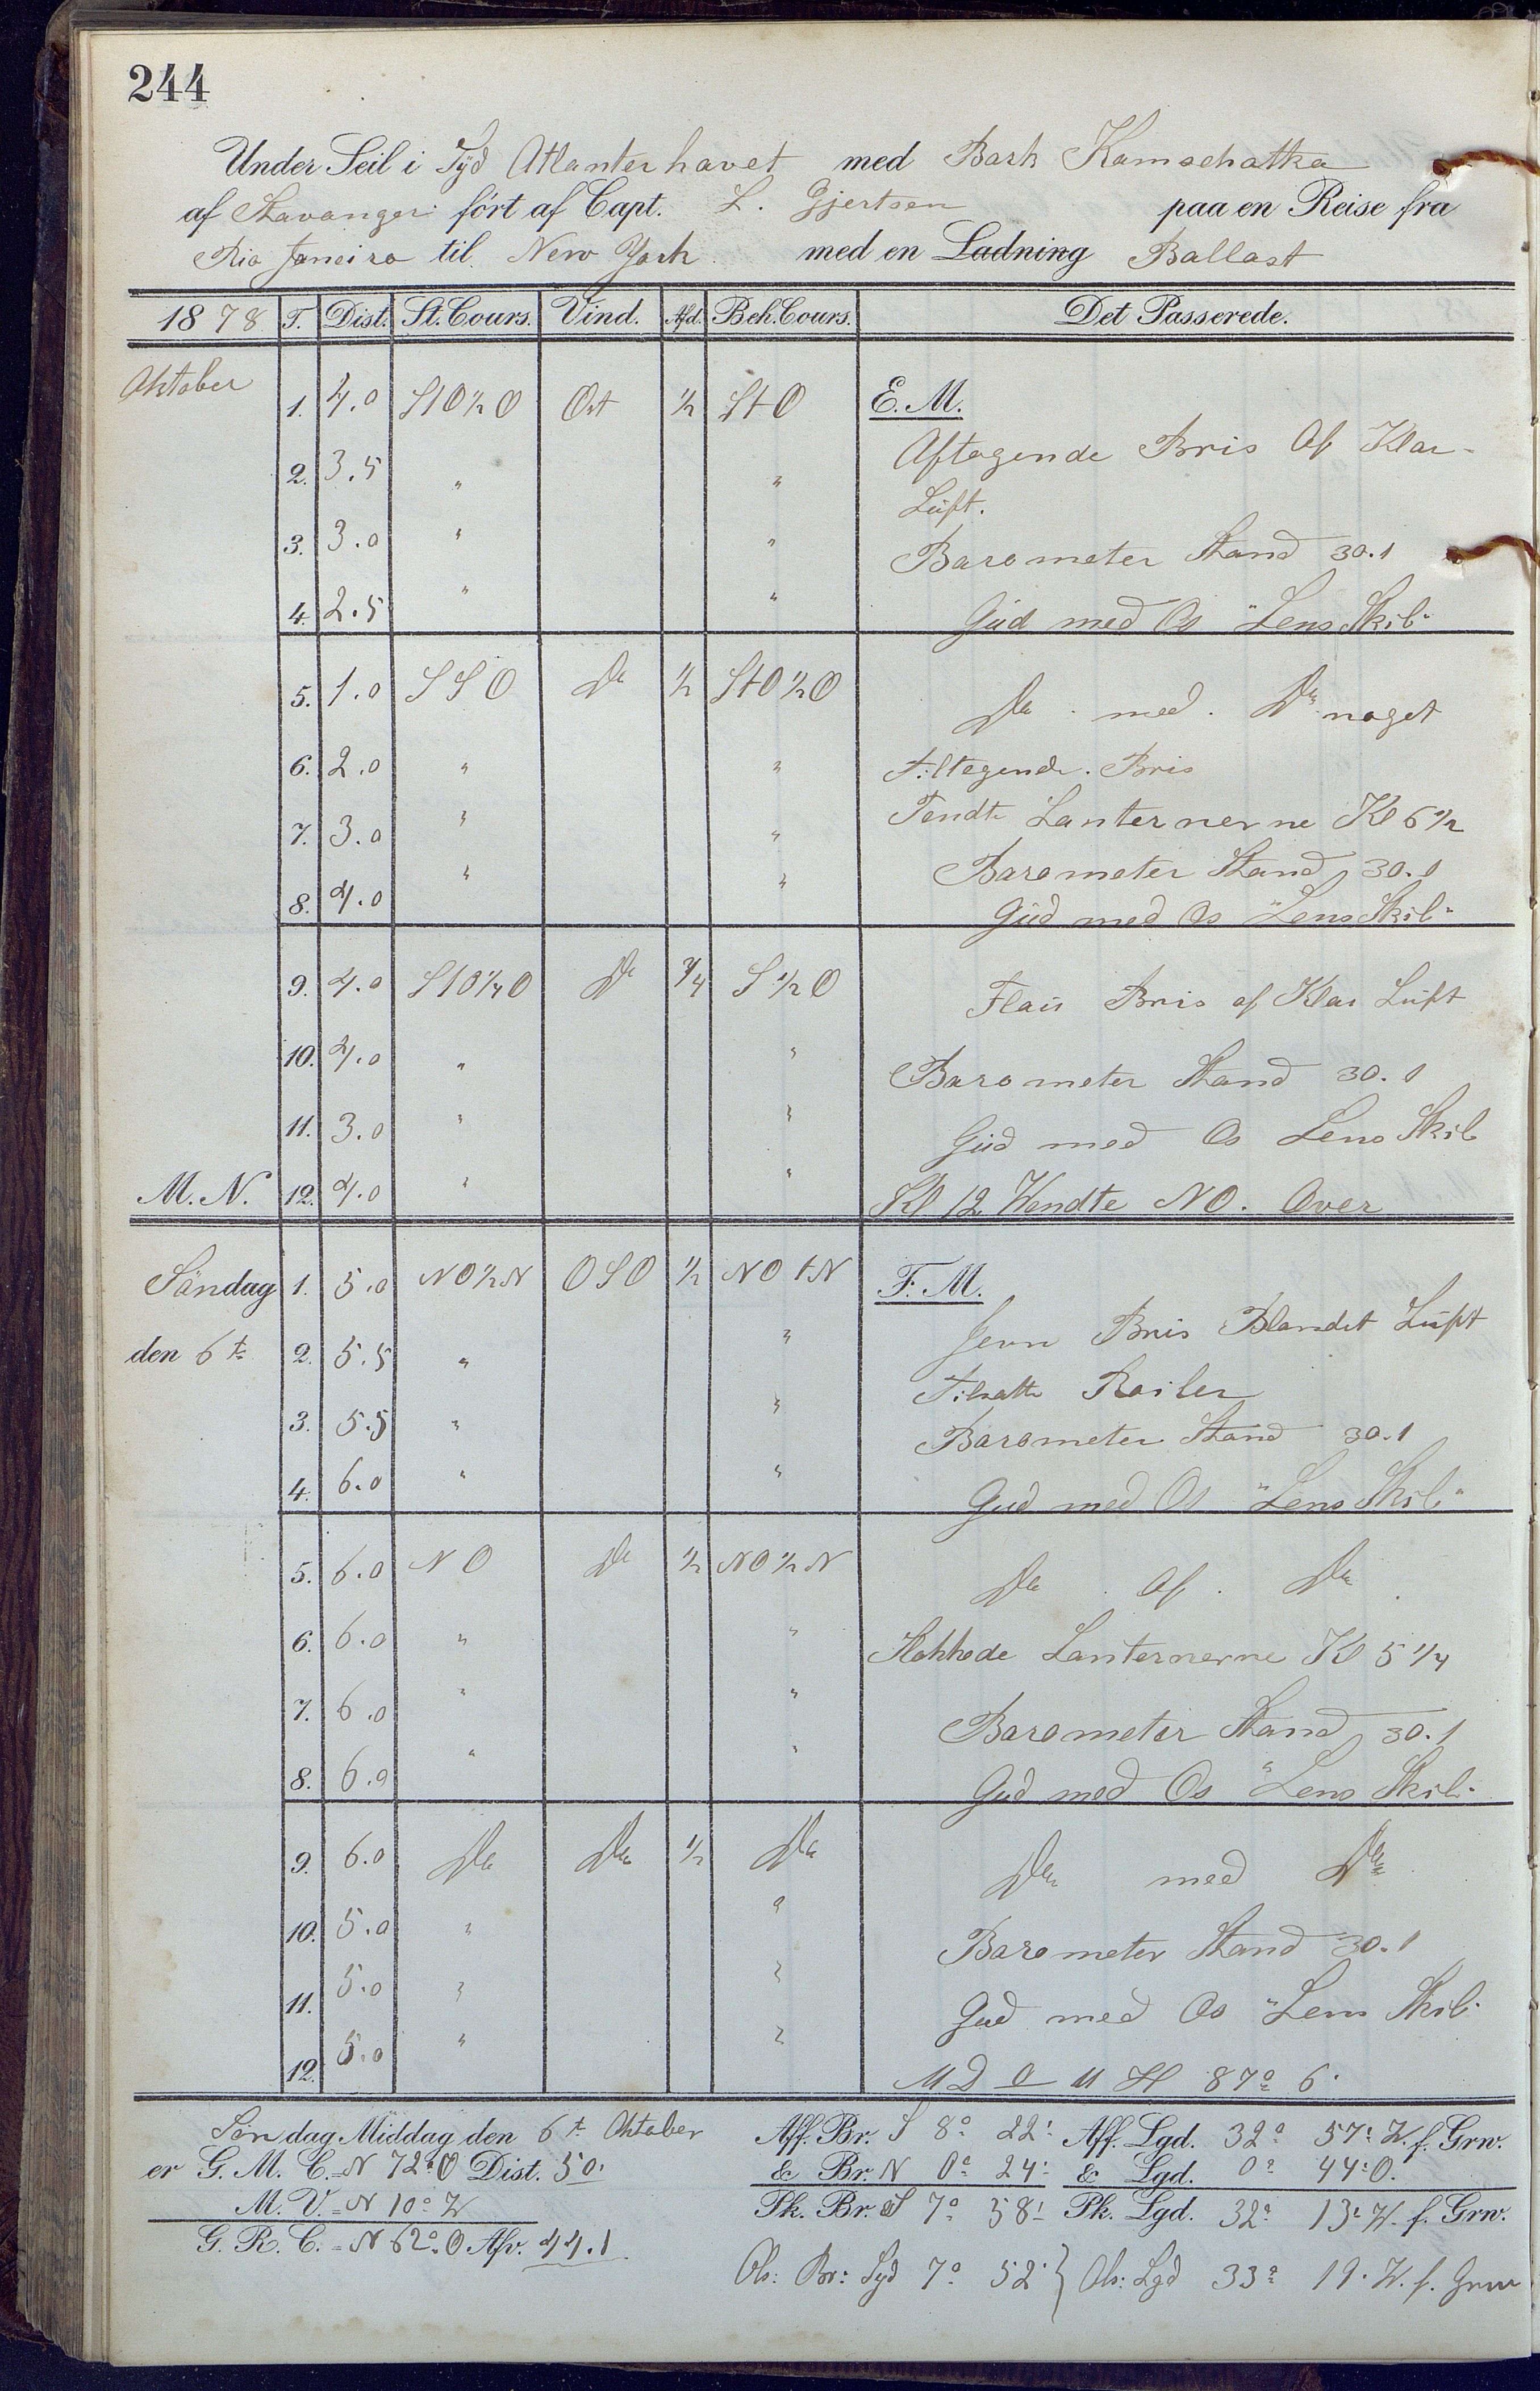 244
Under Seil i Syd Atlanterhavet med Bark Kamschatka
af Stavanger ført af Capt. L. Gjertsen paa en Reise fra
Rio Janeiro til New York med en Ladning Ballast
1878 T. Dist. St. Cours. Vind. Afd. Beh. Cours. Det Passerede.
Oktober 1. 4.0 StO½O Ost ½ StO E. M.
Aftagende Bris Af Klar
2. 3.5 " "
Luft.
3. 3.0 " " Barometer Stand 30.1
4. 2.5 " " Gud med Os "Lens Skib"
5. 1.0 SSO Do ½ StO½O Do med Do noget
6. 2.0 " " Tiltagende Bris
7. 3.0 " " Tendte Lanternerne Kl 6½
Barometer Stand 30.1
8. 4.0 " " Gud med Os "Lens Skib"
9. 4.0 StO¼O Do ¾ S½O Flau Bris af Klar Luft
10. 4.0 " " Barometer Stand 30.1
11. 3.0 " " Gud med Os Lens Skib
M. N. 12. 4.0 " " Kl 12 Wendte NO. Over
Søndag 1. 5.0 NO½N OSO ½ NOtN F. M.
Jevn Bris Blandet Luft
den 6te 2. 5.5 " "
Tilsatte Roiler
3. 5.5 " " Barometer Stand 30.1
4. 6.0 " " Gud med Os "Lens Skib"
5. 6.0 NO Do ½ NO½N Do Af Do
6. 6.0 " " Slokkede Lanternerne Kl 5¼
7. 6.0 " " Barometer Stand 30.1
8. 6.0 " " Gud med Os "Lens Skib"
9. 6.0 Do Do ½ Do Do med Do
10. 5.0 " " Barometer Stand 30.1
11. 5.0 " " Gud med Os "Lens Skib"
12. 5.0 " "
M H 87° 6'
Søndag Middag den 6te Oktober Aff. Br. S 8° 22' Aff. Lgd. 32° 57' W. f. Grw.
er G. M. C. = N 72° O Dist. 50' & Br. N 0° 24' & Lgd. 0° 44' O.
M. V. = N 10° W Pk. Br. S 7° 58' Pk. Lgd. 32° 13' W. f. Grw.
G. R. C. = N 62° O Afv. 44.1
Obs: Br: Syd 7° 52' } Obs: Lgd 33° 19' W. f. Grw